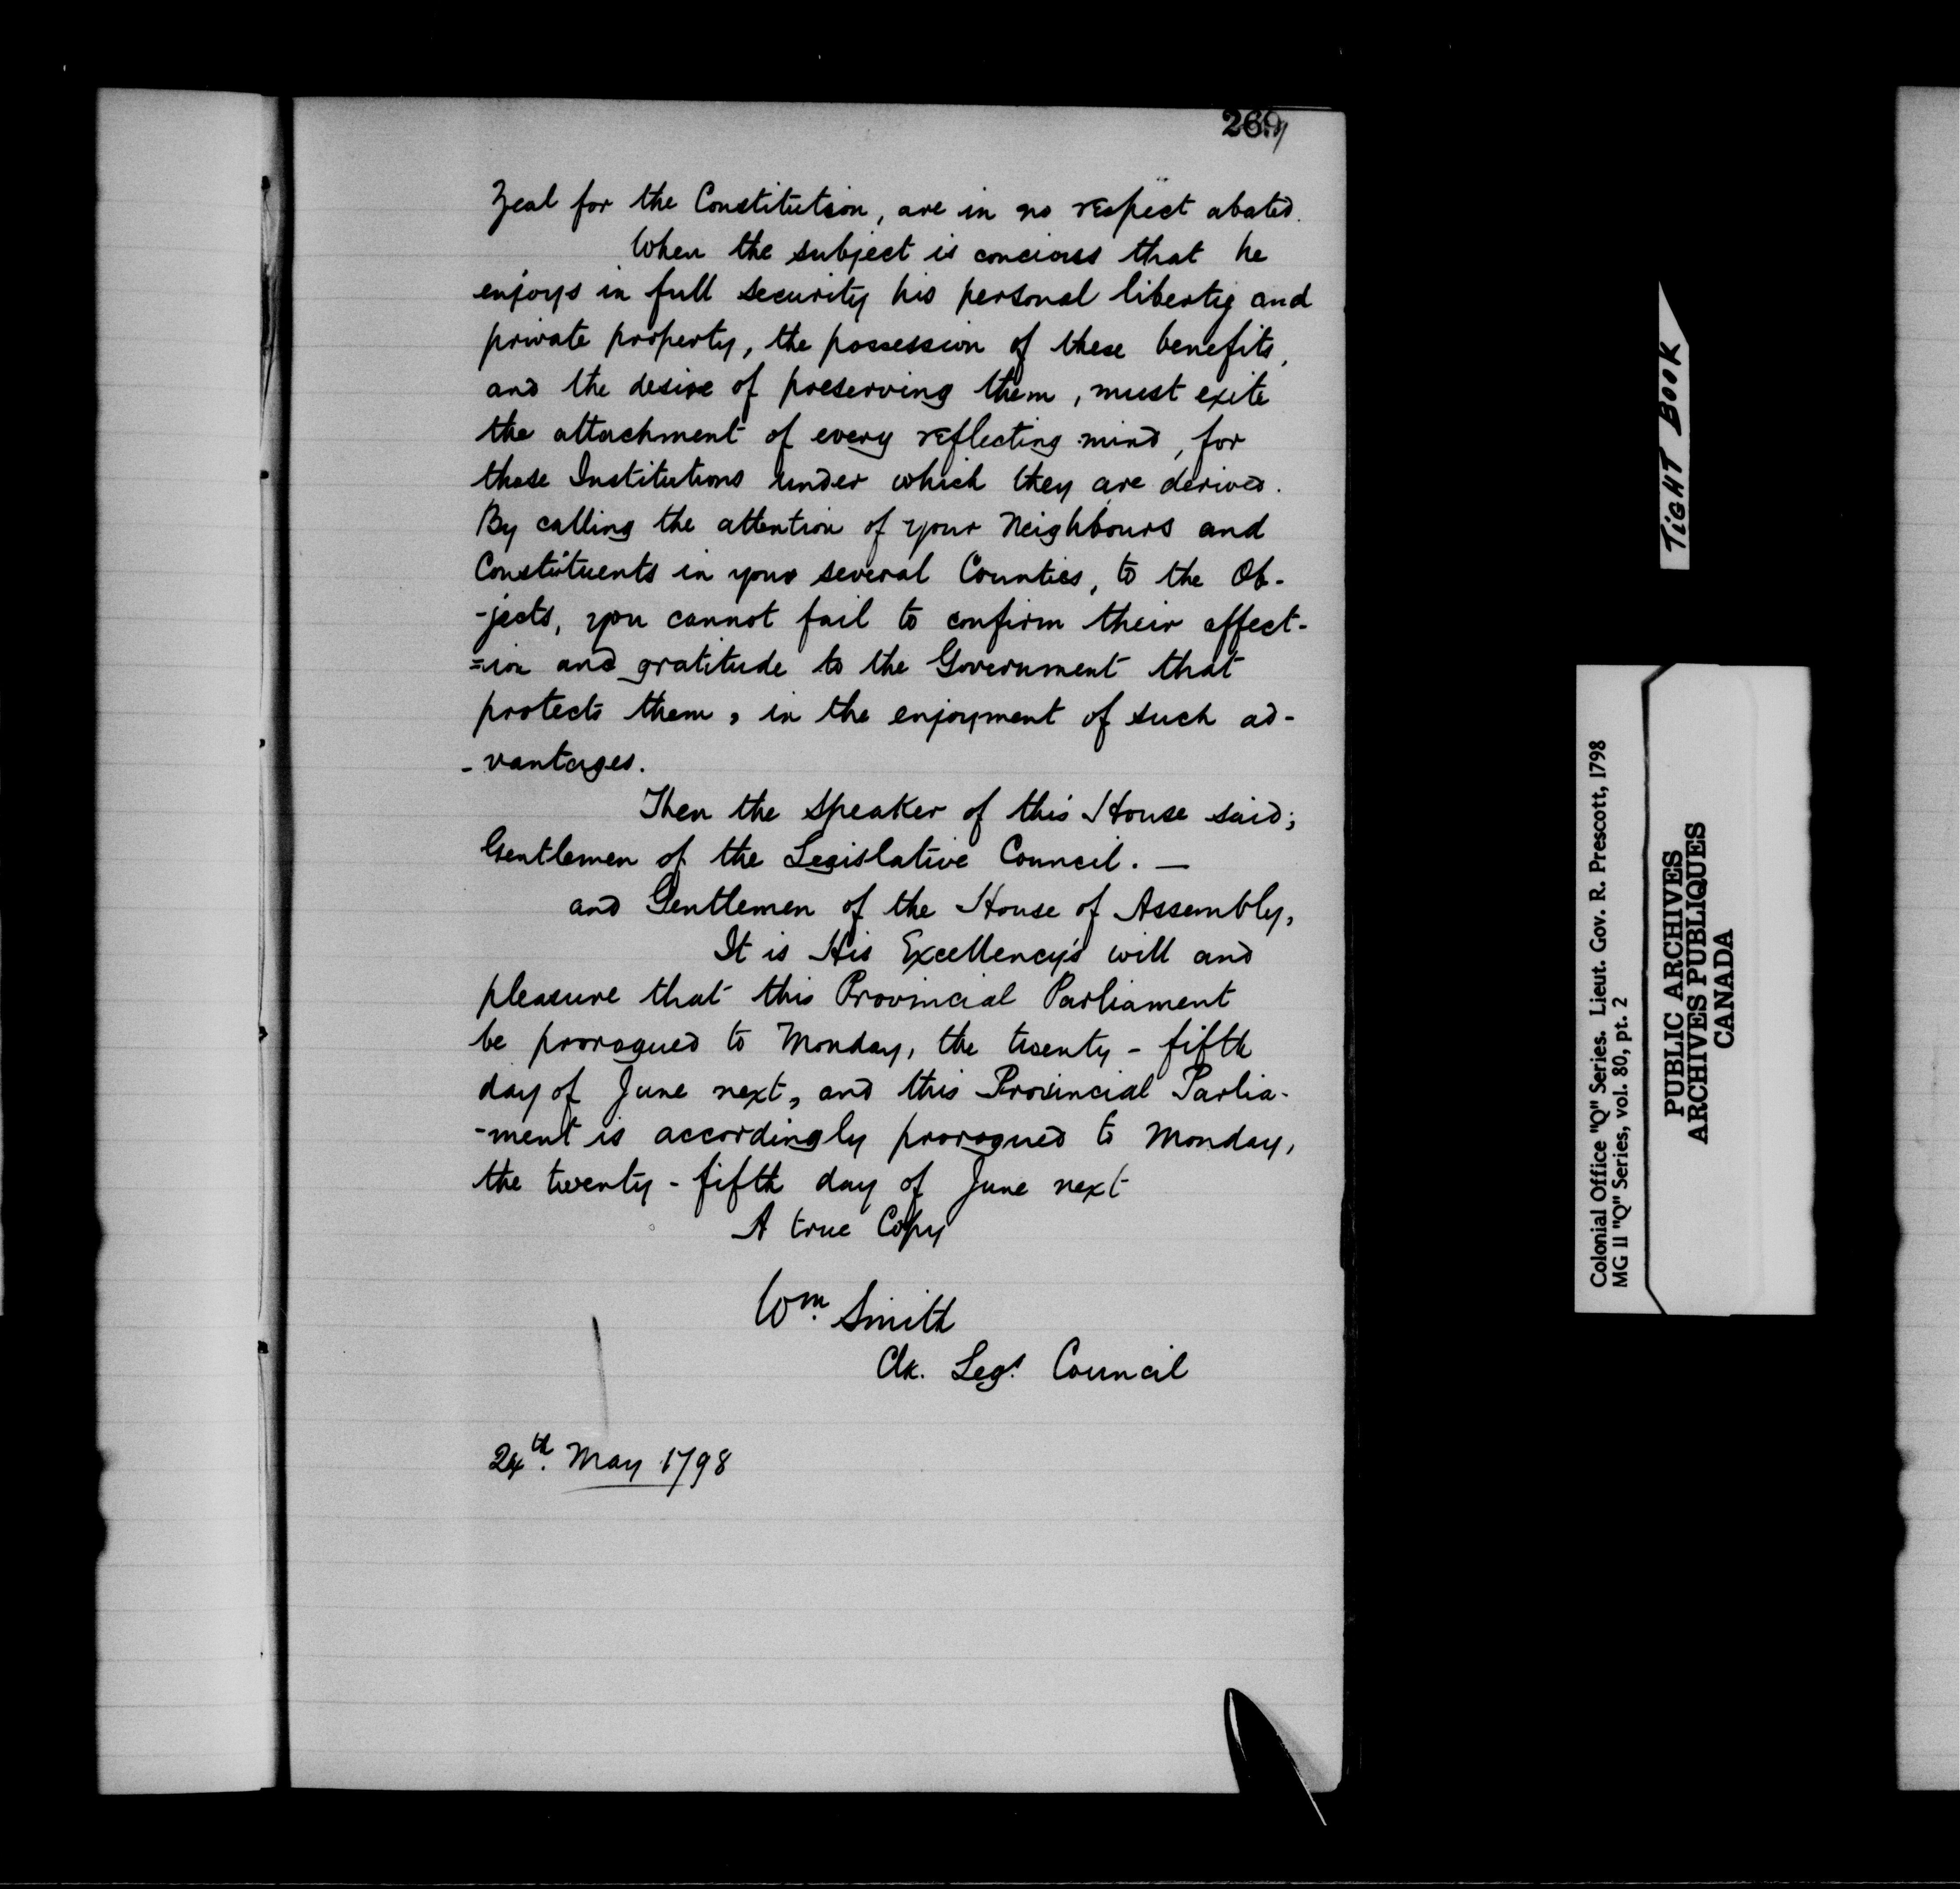 Zeal for the Constitution, are in no respect abated.
When the subject is concious that he
enjoys in full security his personal liberty and
private property, the possession of these benefits,
and the desire of preserving them, must exite
the attachment of every reflecting mind, for
those Institutions under which they are derived.
By calling the attention of your Neighbours and
Constituents in your several Counties, to the Ob-
-jects, you cannot fail to confirm their affect-
=ion and gratitude to the Government that
protects them, in the enjoyment of such ad-
-vantages.
Then the Speaker of this House said;
Gentlemen of the Legislative Council. —
and Gentlemen of the House of Assembly,
It is His Excellency's will and
pleasure that this Provincial Parliament
be prorogued to Monday, the twenty-fifth
day of June next, and this Provincial Parlia-
-ment is accordingly prorogued to Monday,
the twenty-fifth day of June next
A true Copy
Wm. Smith
Clk. Legs. Council
24th. May 1798
TIGHT BOOK
Colonial Office "Q" Series. Lieut. Gov. R. Prescott, 1798
MG 11 "Q" Series, vol. 80, pt. 2
PUBLIC ARCHIVES
ARCHIVES PUBLIQUES
CANADA